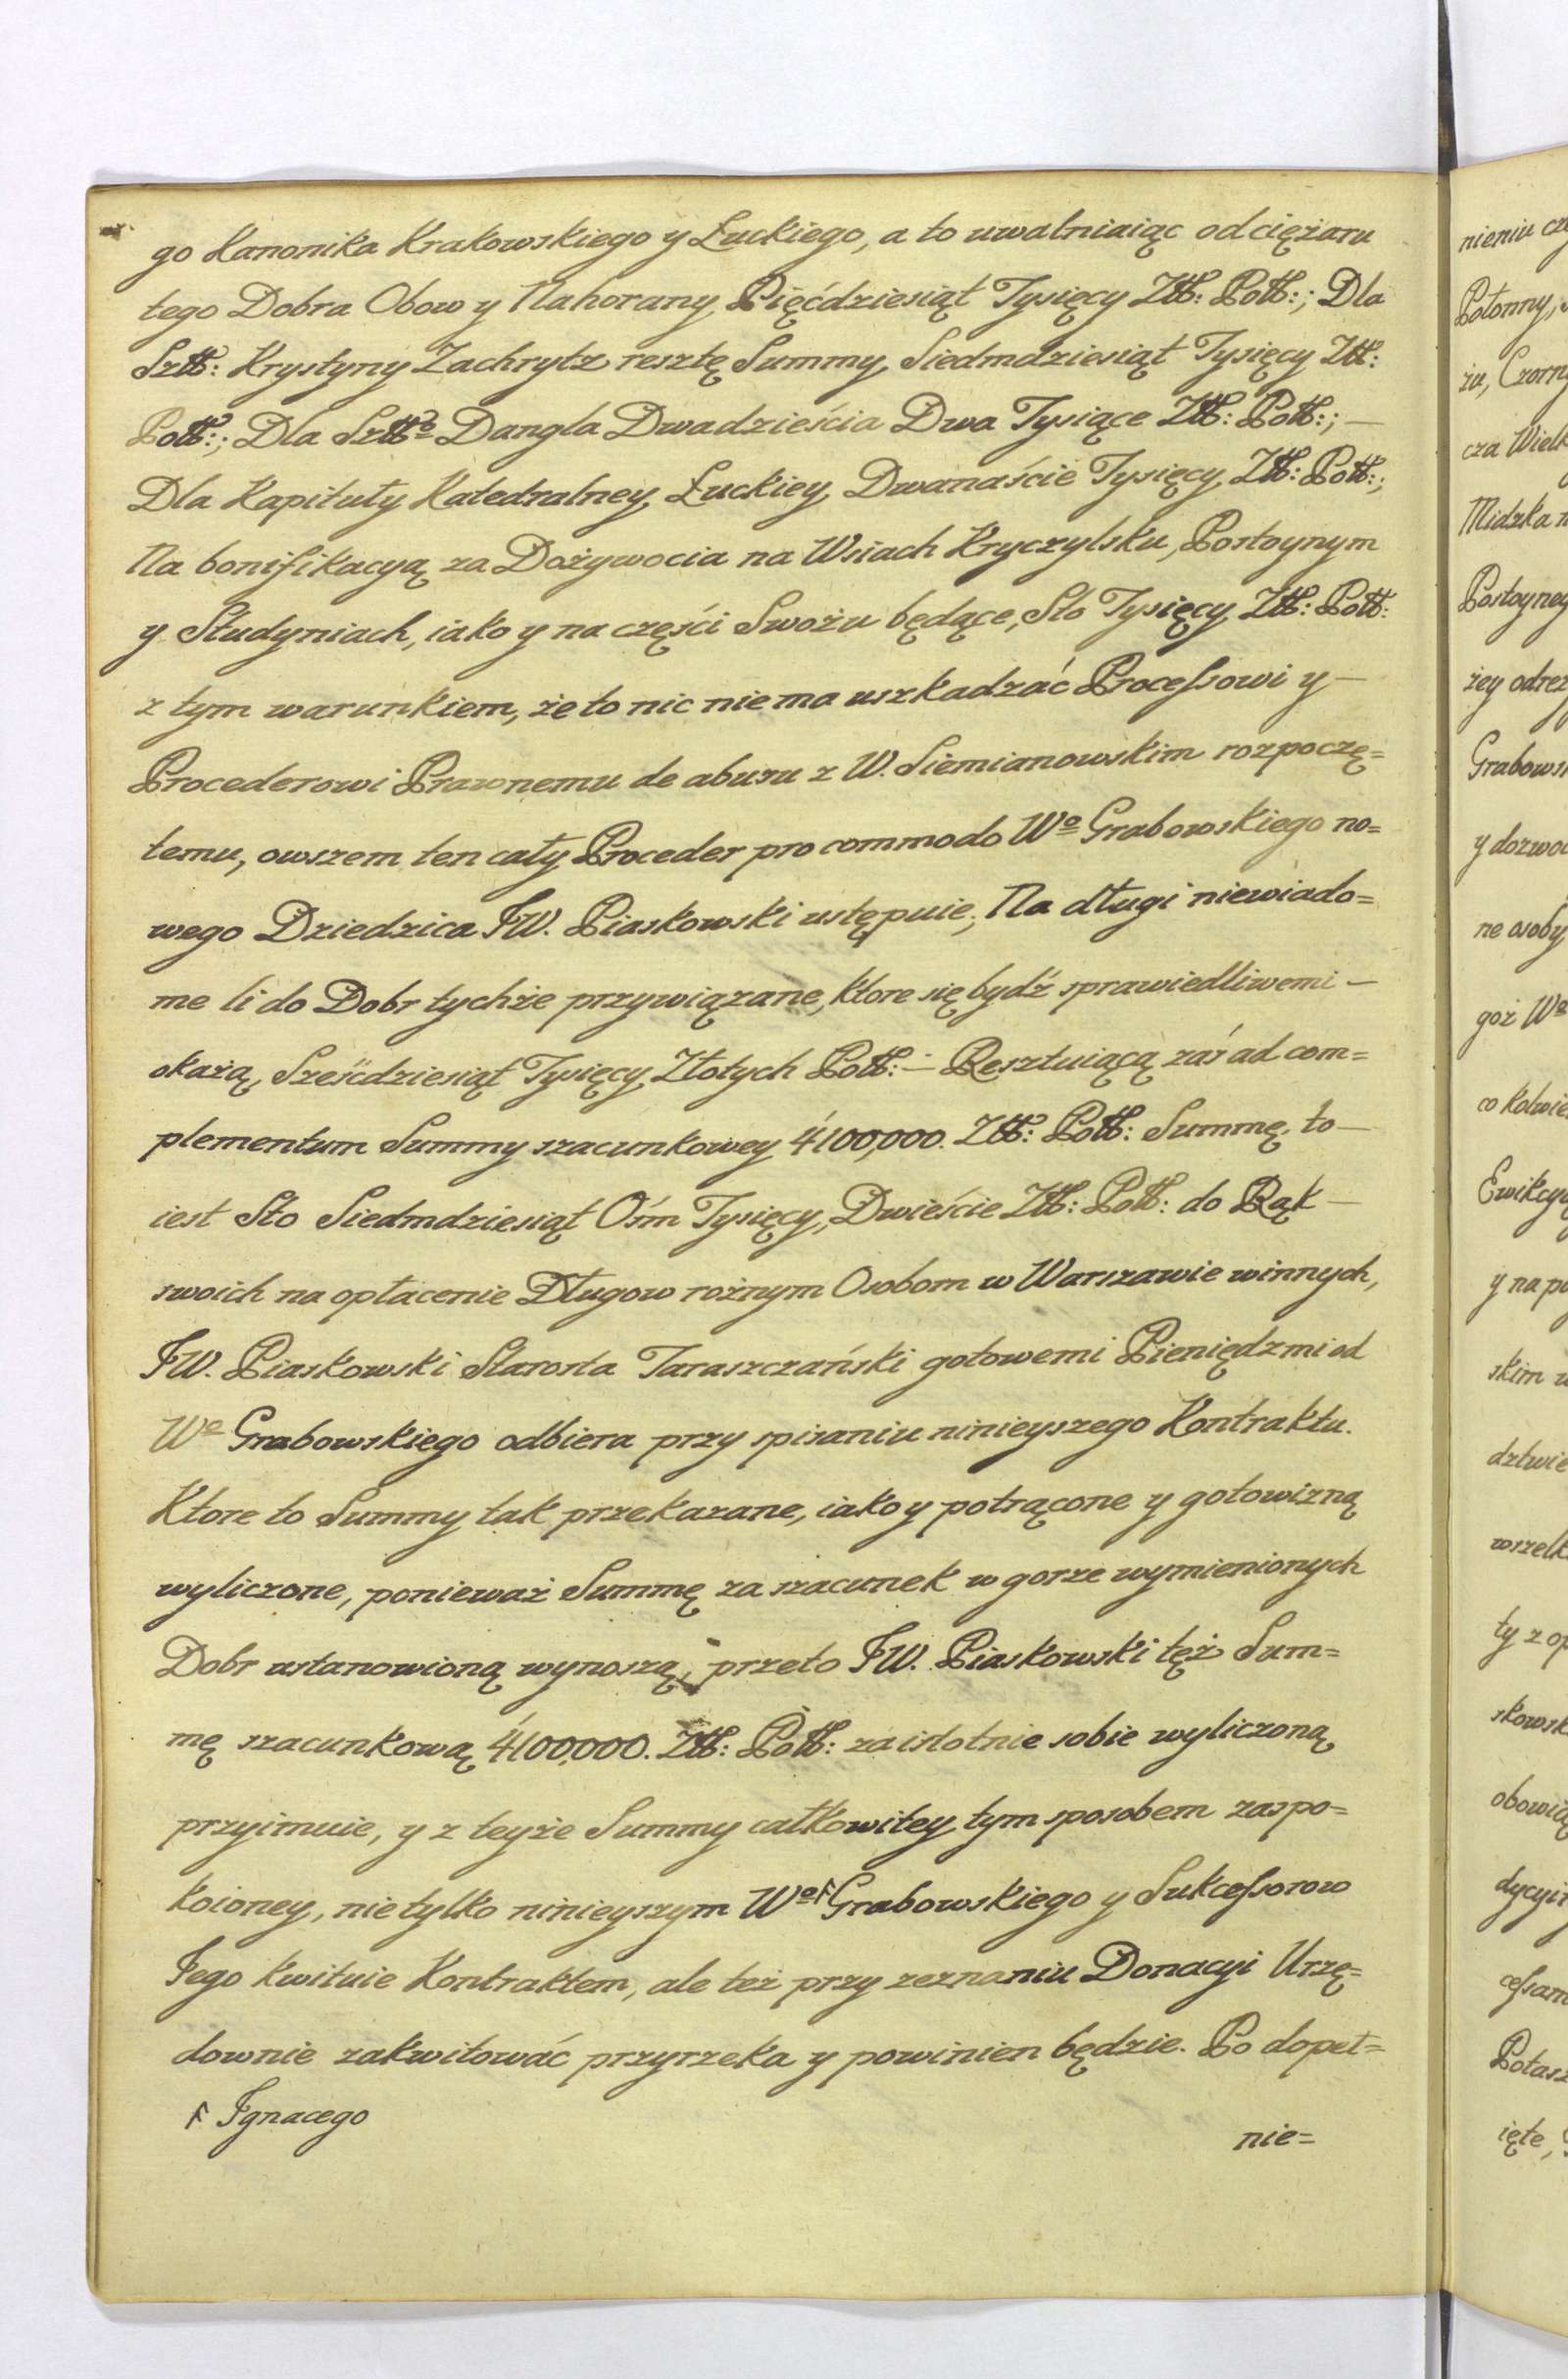 go Kanonika Krakowskiego y Łuckiego, a to uwalniaiąc od ciężaru
tego Dobra Obow y Nahorany Pięćdziesiąt Tysięcy Złł: Poll:; Dla
Szll: Krystyny Zachrytz resztę Summy Siedmdziesiąt Tysięcy Złł:
Poll:; Dla Szll Dangla Dwadzieścia Dwa Tysiące Złł: Poll:; —
Dla Kapituły Katedralney Łuckiey Dwanaście Tysięcy Złł: Poll:;
Na bonifikacyą za Dożywocia na Wsiach Kryczylsku, Postoynym
y Studyniach, iako y na części Swożu będące, Sto Tysięcy Złł: Poll:
z tym warunkiem, że to nic nie ma uszkadzać Processowi y —
Procederowi Prawnemu de abusu z W. Siemianowskim rozpoczę=
temu, owszem ten cały Proceder pro commodo Wº Grabowskiego no=
wego Dziedzica JW. Piaskowski ustępuie; Na długi niewiado=
me li do Dobr tychże przywiązane, ktore się bydź sprawiedliwemi —
okażą, Sześćdziesiąt Tysięcy Złotych Poll: — Resztuiącą zaś ad com=
plementum Summy szacunkowey 4'100,000. Złł: Poll: Summę, to —
iest Sto Siedmdziesiąt Ośm Tysięcy, Dwieście Złł: Poll: do Rąk —
swoich na opłacenie Długow rożnym Osobom w Warszawie winnych,
JW. Piaskowski Starosta Taraszczański gotowemi Pieniędzmi od
Wº Grabowskiego odbiera przy spisaniu ninieyszego Kontraktu.
Ktore to Summy tak przekazane, iako y potrącone y gotowizną
wyliczone, ponieważ Summę za szacunek w gorze wymienionych
Dobr ustanowioną wynoszą, przeto JW. Piaskowski tęż Sum=
mę szacunkową 4'100,000. Złł: Poll: za istotnie sobie wyliczoną
przyimuie, y z teyże Summy całkowitey tym sposobem zaspo=
koioney, nie tylko ninieyszym Wº Grabowskiego y Sukcessorow
Jego kwituie Kontraktem, ale też przy zeznaniu Donacyi Urzę=
downie zakwitować przyrzeka y powinien będzie. Po dopeł=
Ignacego
nie=
nieniu
Połonny,
żu,
cza
Midzka
Postoyney
żey
y
ne osoby
goż Wº
y na
skim
ięte,